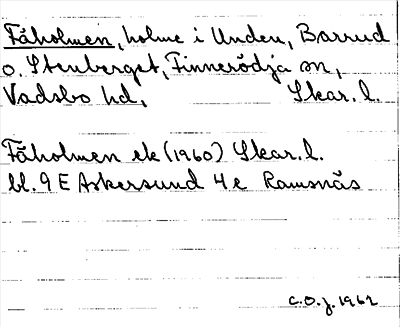 Fåholmen, holme i Unden, Barrud
o. Stenberget, Finnerödja sn,
Vadsbo hd, Skar. l.
Fåholmen ek (1960) Skar. l.
bl. 9 E Askersund 4 e Ramsnäs
C.O.J. 1962